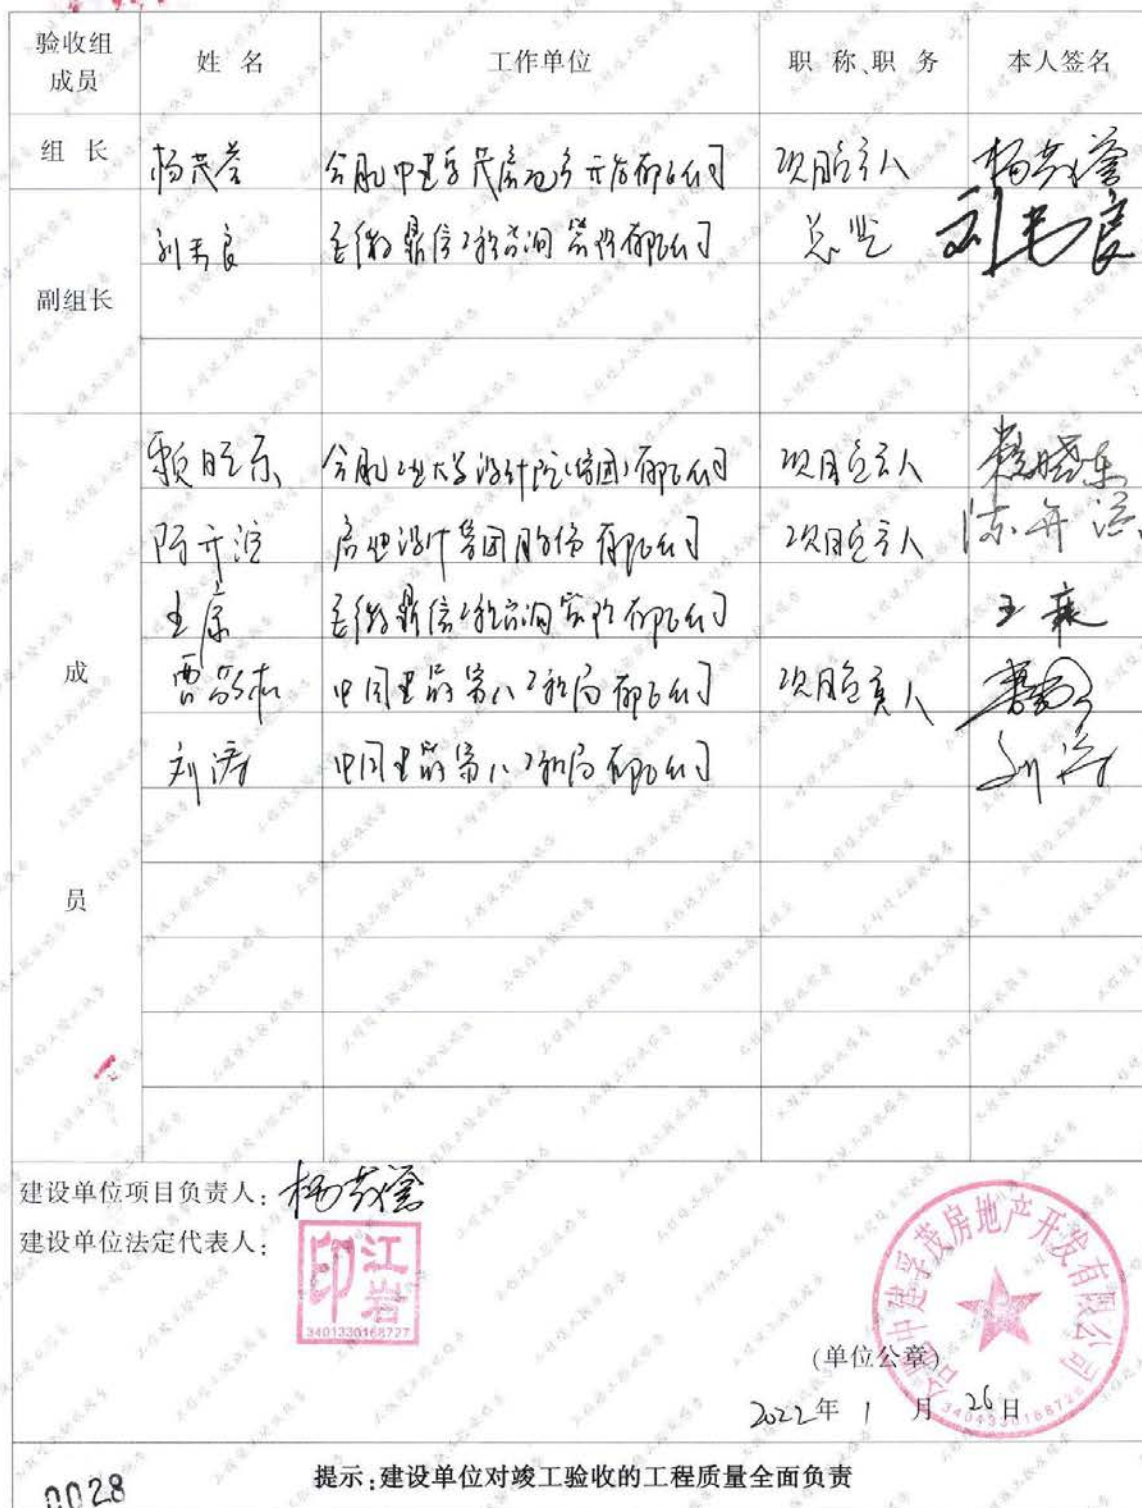 验收组成员 姓 名 工作单位 职 称、职 务 本人签名
组 长 杨茂 合肥中建孚茂房地产开发有限公司 项目负责人 杨茂
刘 良 安徽鼎信工程咨询管理有限公司 总监 刘 良
副组长
晓东 合肥工业大学设计院(集团)有限公司 项目负责人 晓东
陈 设计集团股份有限公司 项目负责人 陈
王康 安徽鼎信工程咨询管理有限公司 王康
成 曹 中国建筑第八工程局有限公司 项目负责人
刘涛 中国建筑第八工程局有限公司 刘涛
员
建设单位项目负责人: 杨茂
建设单位法定代表人:
江岩印
3401330168727
合肥中建孚茂房地产开发有限公司
(单位公章)
2022年 1 月 26日
提示:建设单位对竣工验收的工程质量全面负责
0028